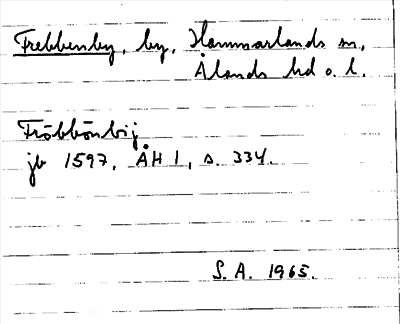 Frebbenby, by, Hammarlands sn,
Ålands hd o. l.
Fröbbönbij
jb 1597, ÅH 1, s. 334.
S. A. 1965.